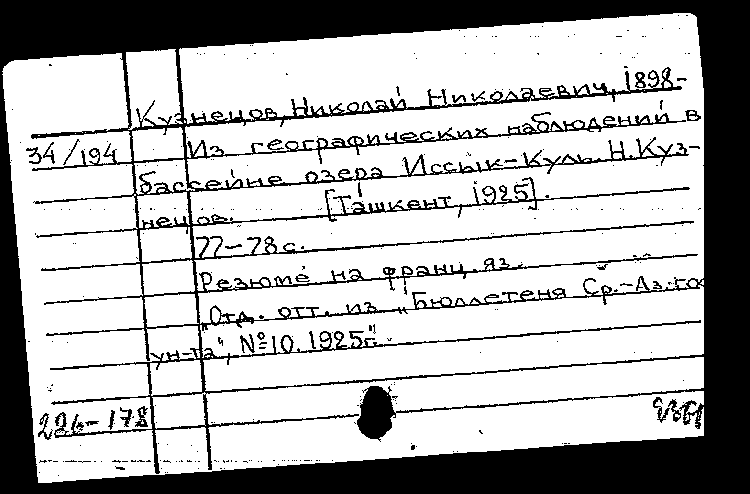 Кузнецов, Николай Николаевич, 1898-
34/194 Из географических наблюдений в
бассейне озера Иссык-Куль. Н. Куз-
нецов. [Ташкент, 1925].
77-78 с.
Резюме на франц. яз.
„Отд. отт. из „Бюллетеня Ср.-Аз. гос
ун-та", №10. 1925г."
226-178